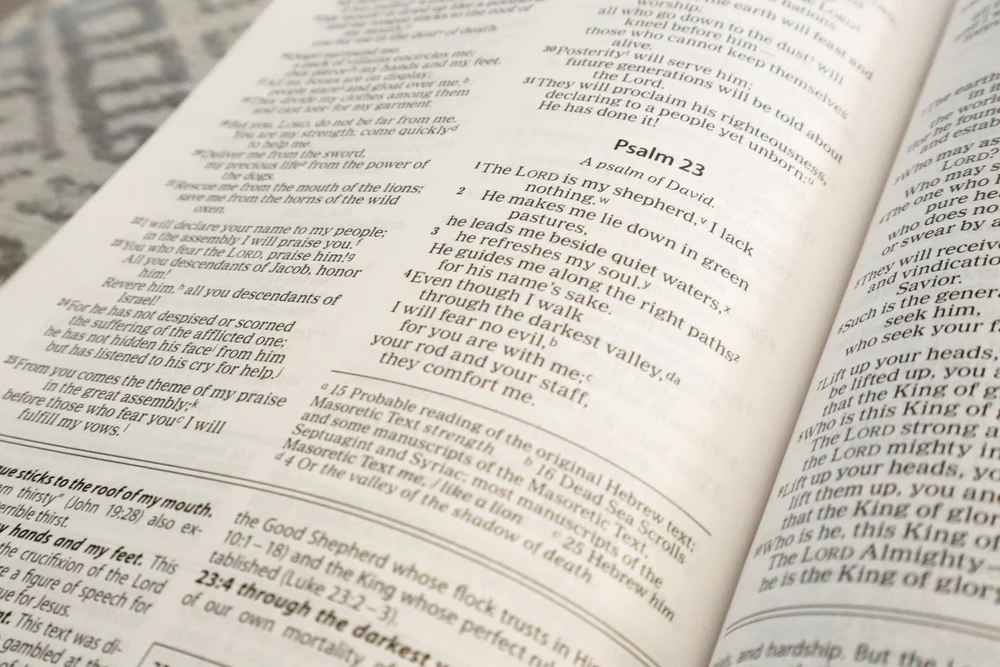 they pierce my hands and my feet.
All my bones are on display;
people stare and gloat over me.b
They divide my clothes among them
and cast lots for my garment.
But you, LORD, do not be far from me.
You are my strength; come quicklyd
to help me.
Deliver me from the sword,
my precious lifee from the power of
the dogs.
Rescue me from the mouth of the lions;
save me from the horns of the wild
oxen.
22I will declare your name to my people;
in the assembly I will praise you.f
23You who fear the LORD, praise him!g
All you descendants of Jacob, honor
him!
Revere him,h all you descendants of
Israel!
24For he has not despised or scorned
the suffering of the afflicted one;
he has not hidden his facei from him
but has listened to his cry for help.j
25From you comes the theme of my praise
in the great assembly;k
before those who fear youc I will
fulfill my vows.l
worship;
all who go down to the dust will
kneel before him—
those who cannot keep themselves
alive.
30Posterity will serve him;
future generations will be told about
the Lord.
31They will proclaim his righteousness,
declaring to a people yet unborn:u
He has done it!
Psalm 23
A psalm of David.
1The LORD is my shepherd,v I lack
nothing.w
2 He makes me lie down in green
pastures,
he leads me beside quiet waters,x
3 he refreshes my soul.y
He guides me along the right pathsz
for his name's sake.
4Even though I walk
through the darkest valley,da
I will fear no evil,b
for you are with me;c
your rod and your staff,
they comfort me.
a 15 Probable reading of the original Hebrew text;
Masoretic Text strength b 16 Dead Sea Scrolls
and some manuscripts of the Masoretic Text,
Septuagint and Syriac; most manuscripts of the
Masoretic Text me, / like a lion c 25 Hebrew him
d 4 Or the valley of the shadow of death
sticks to the roof of my mouth.
thirsty" (John 19:28) also ex-
terrible thirst.
hands and my feet. This
the crucifixion of the Lord
a figure of speech for
for Jesus.
This text was di-
gambled at the
the Good Shepherd whose flock trusts in
10:1–18) and the King whose perfect
tablished (Luke 23:2–3).
23:4 through the darkest
of our own mortality,
who may
LORD?
Who may
The one who
pure
who does no
or swear by a
They will receive
and vindication
Savior.
Such is the
seek him,
who seek your
Lift up your heads,
be lifted up, you
that the King of
Who is this King of
The LORD strong a
the LORD mighty in
Lift up your heads,
lift them up, you
that the King of
Who is he, this King of
The LORD Almighty—
he is the King of
and hardship. But the